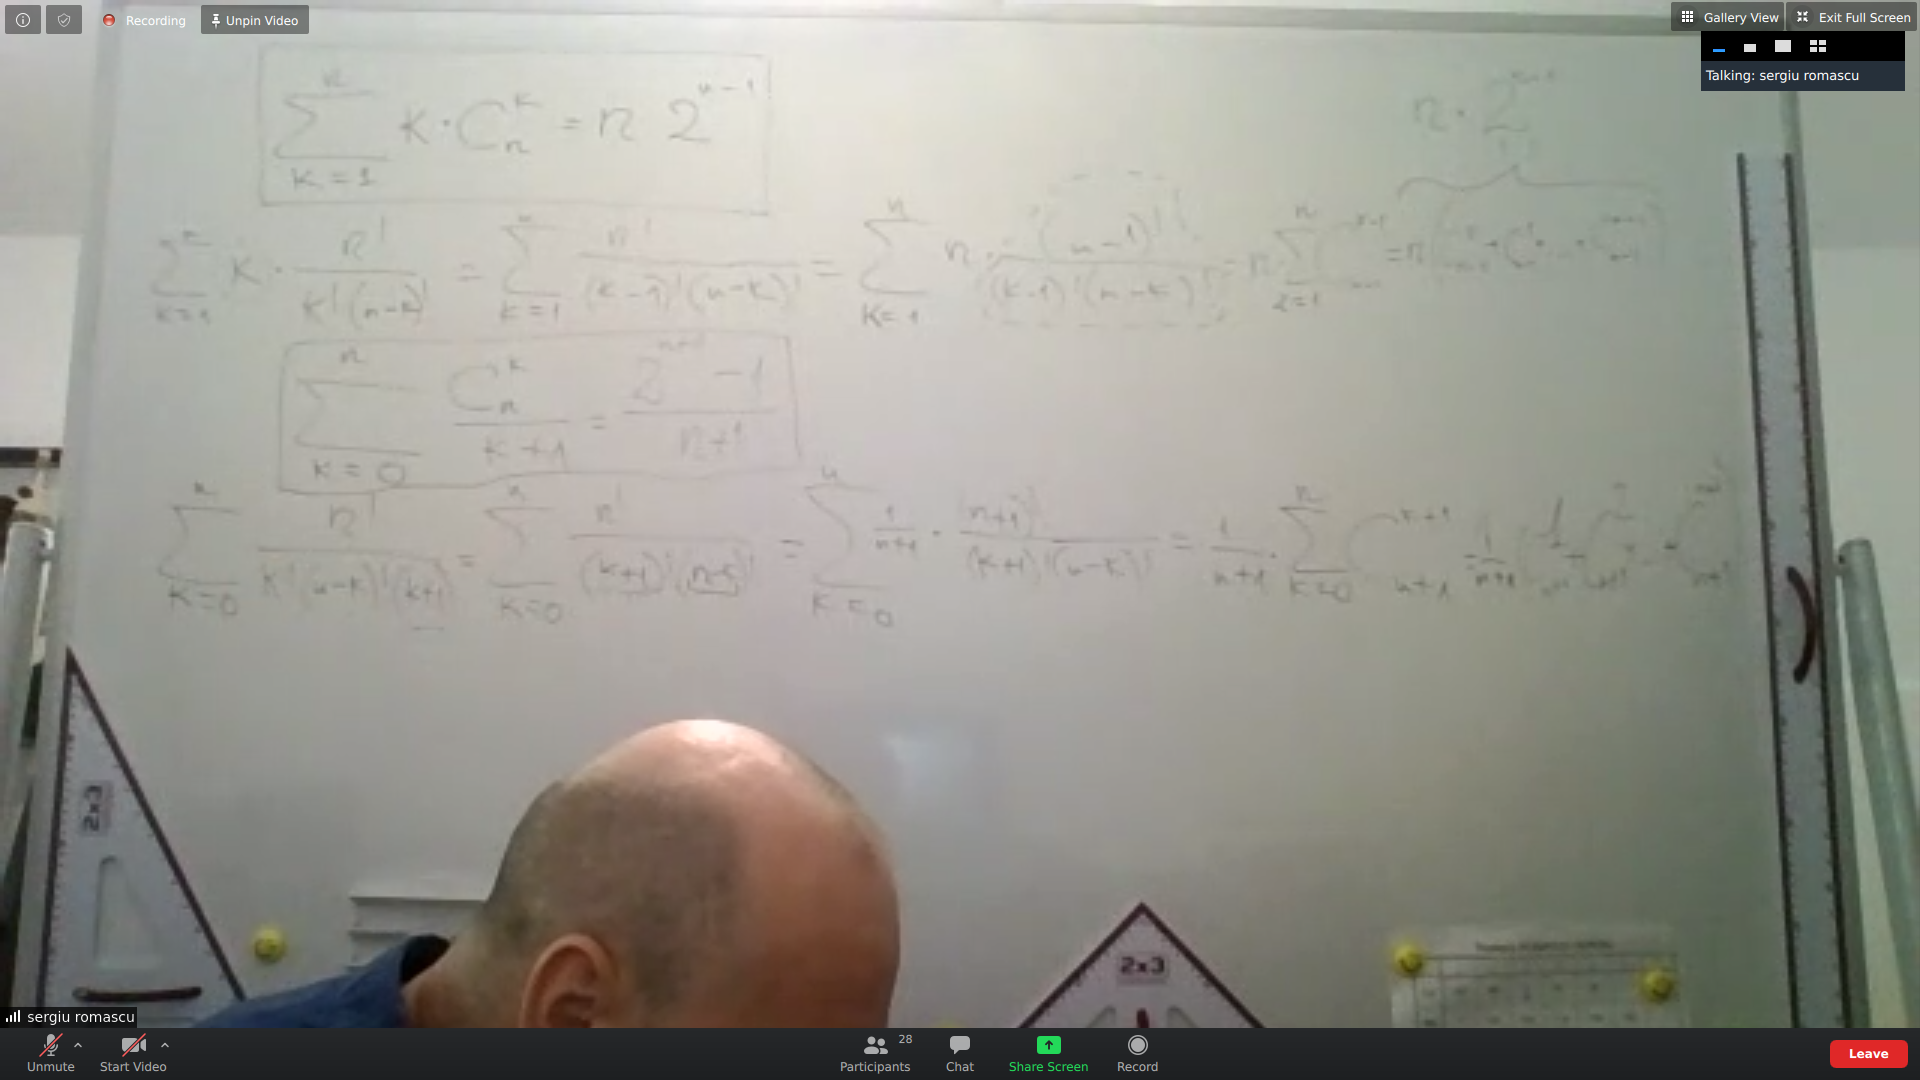 Recording
Unpin Video
Gallery View
Exit Full Screen
Talking: sergiu romascu
n
∑ k·C_n^k = n 2^{n-1}
k=1
n·2^{n-1}
∑_{k=1}^{n} k · n!/(k!(n-k)!) = ∑_{k=1}^{n} n!/((k-1)!(n-k)!) = ∑_{k=1}^{n} n · (n-1)!/((k-1)!(n-k)!) = n ∑ = n(
∑_{k=0}^{n} C_n^k/(k+1) = (2^{n+1} - 1)/(n+1)
∑_{k=0}^{n} n!/(k!(n-k)!(k+1)) = ∑_{k=0}^{n} n!/((k+1)!(n-k)!) = ∑_{k=0}^{n} 1/(n+1) · (n+1)!/((k+1)!(n-k)!) = 1/(n+1) · ∑_{k=0}^{n} C_{n+1}^{k+1} = 1/(n+1) (
2x3
2x3
sergiu romascu
Unmute
Start Video
Participants 28
Chat
Share Screen
Record
Leave